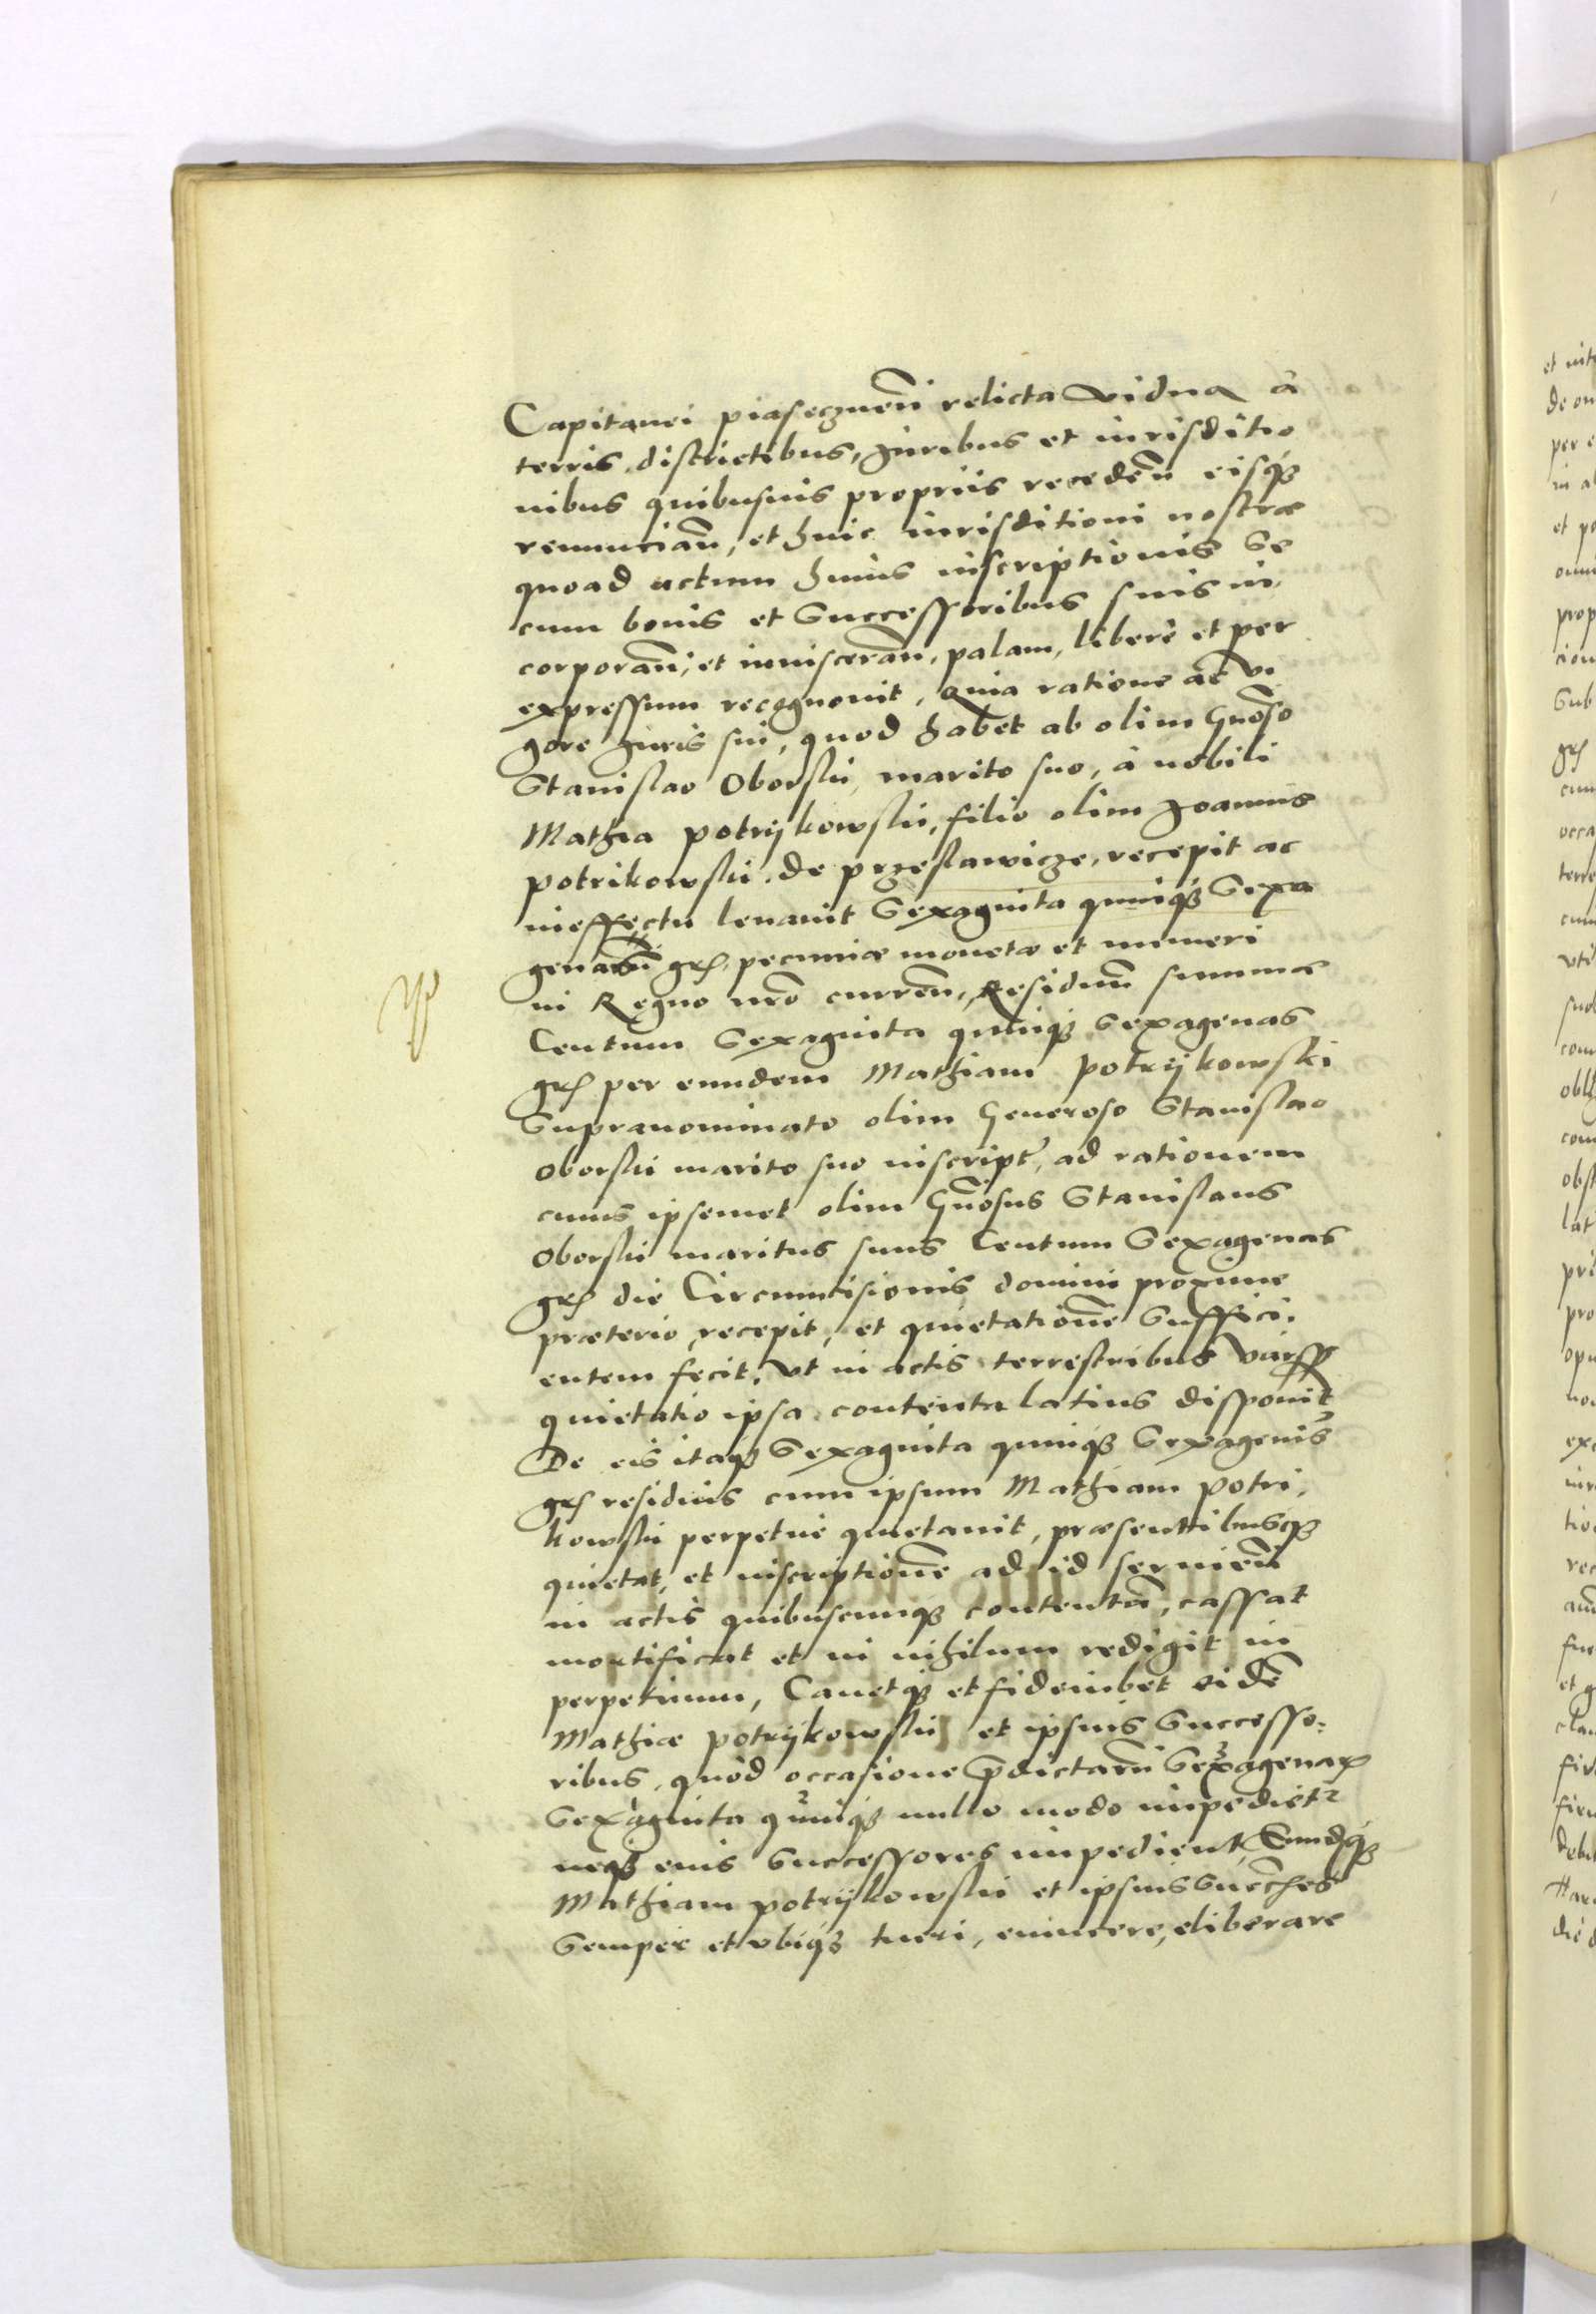 Capitanei piasecznen̄ relicta vidua à
terris, districtibus, Juribus et iurisditio
nibus quibusuis proprijs receden̄ eisq3
renuncian̄, et huic iurisditioni nostræ
quoad actum huius inscriptionis Se
cum bonis et Successoribus suis in,
corporan̄, et inuisceran̄, palam, liberè et per
expressum recognouit, Quia ratione ac vi
gore Juris sui, quod habet ab olim Gn̄oso
Stanislao Oborski, marito suo, à nobili
Mathia potrijkowski, filio olim Joannis
potrikowski de przeslawicze, recepit ac
in effectu leuauit Sexaginta quinq3 Sexa
genarū grs. pecuniæ monetæ et numeri
in Regno nr̄o curren̄, Residuū summæ
Centum Sexaginta quinq3 sexagenas
grs per eundem Mathiam potrijkowski
Supranominato olim Generoso Stanislao
oborski marito suo inscript, ad rationem
cuius ipsemet olim Gn̄osus Stanislaus
Oborski maritus suus Centum Sexagenas
grs die Circumcisionis domini proxime
præterio, recepit, et quietationē Suffici,
entem fecit, vt in actis terrestribus
quietatio ipsa contenta latius disponit
De eis itaq3 Sexaginta quinq3 Sexagenis
grs residuis eum ipsum Mathiam potri,
kowski perpetuè quietauit, præsentibusq3
quietat, et inscriptionē ad id seruien̄
in actis quibuscunq3 contentā, cassat
mortificat et in nihilum redigit in
perpetuum, Cauetq3 et fideiubet eidē
Mathiæ potrijkowski et ipsius Successo:
ribus, quòd occasione p̄dictarū Sexagenar
Sexaginta quinq3 nullo modo impediet
neq3 eius Successores impedient, Eundēq3
Mathiam potrijkowski et ipsius
Semper et vbiq3 tueri, euincere, eliberare